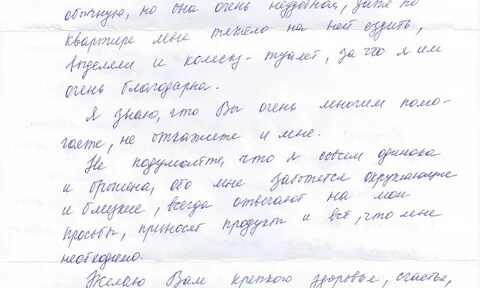 обычную, но она очень неудобная, даже по
квартире мне тяжело на ней ездить,
выделяли и коляску-туалет, за что я им
очень благодарна.
Я знаю, что Вы очень многим помо-
гаете, не откажите и мне.
Не подумайте, что я совсем одинока
и брошена, обо мне заботятся окружающие
и близкие, всегда отвечают на мои
просьбы, приносят продукты и всё, что мне
необходимо.
Желаю Вам крепкого здоровья, счастья,